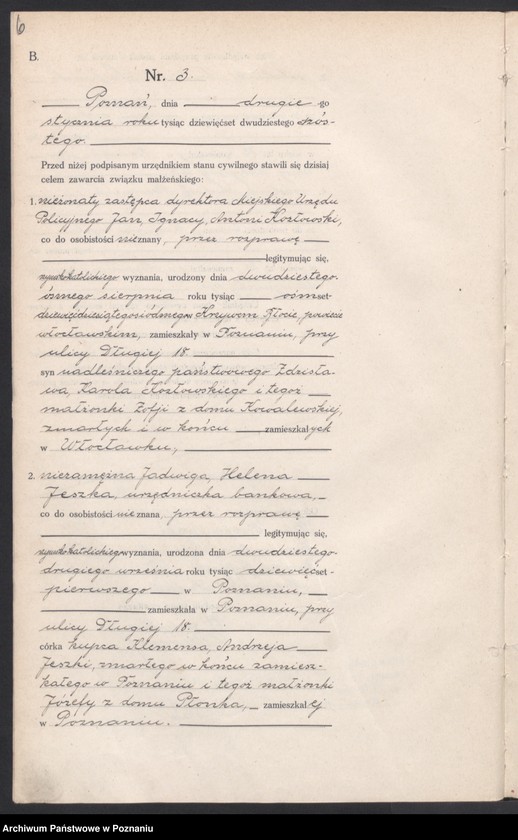 6
B.
Nr. 3.
Poznań, dnia drugiego
stycznia roku tysiąc dziewięćset dwudziestego szós-
tego
Przed niżej podpisanym urzędnikiem stanu cywilnego stawili się dzisiaj
celem zawarcia związku małżeńskiego:
1. nieżonaty zastępca dyrektora Miejskiego Urzędu
Policyjnego Jan, Ignacy, Antoni Kozłowski,
co do osobistości nieznany, przez rozprawę
legitymując się,
rzymskokatolickiego wyznania, urodzony dnia dwudziestego-
ósmego sierpnia roku tysiąc ośmset-
dziewięćdziesiątegosiódmego w Krzywem Błocie, powiecie
włocławskim, zamieszkały w Poznaniu, przy
ulicy Długiej 18.
syn nadleśniczego państwowego Zdzisła-
wa, Karola Kozłowskiego i tegoż
małżonki Zofji z domu Kowalewskiej,
zmarłych i w końcu zamieszkałych
w Włocławku,
2. niezamężna Jadwiga, Helena
Jeszka, urzędniczka bankowa,
co do osobistości nieznana, przez rozprawę
legitymując się,
rzymskokatolickiego wyznania, urodzona dnia dwudziestego-
drugiego września roku tysiąc dziewięćset-
pierwszego w Poznaniu,
zamieszkała w Poznaniu, przy
ulicy Długiej 18.
córka kupca Klemensa, Andrzeja
Jeszki, zmarłego w końcu zamiesz-
kałego w Poznaniu i tegoż małżonki
Józefy z domu Płonka, zamieszkałej
w Poznaniu.
Archiwum Państwowe w Poznaniu